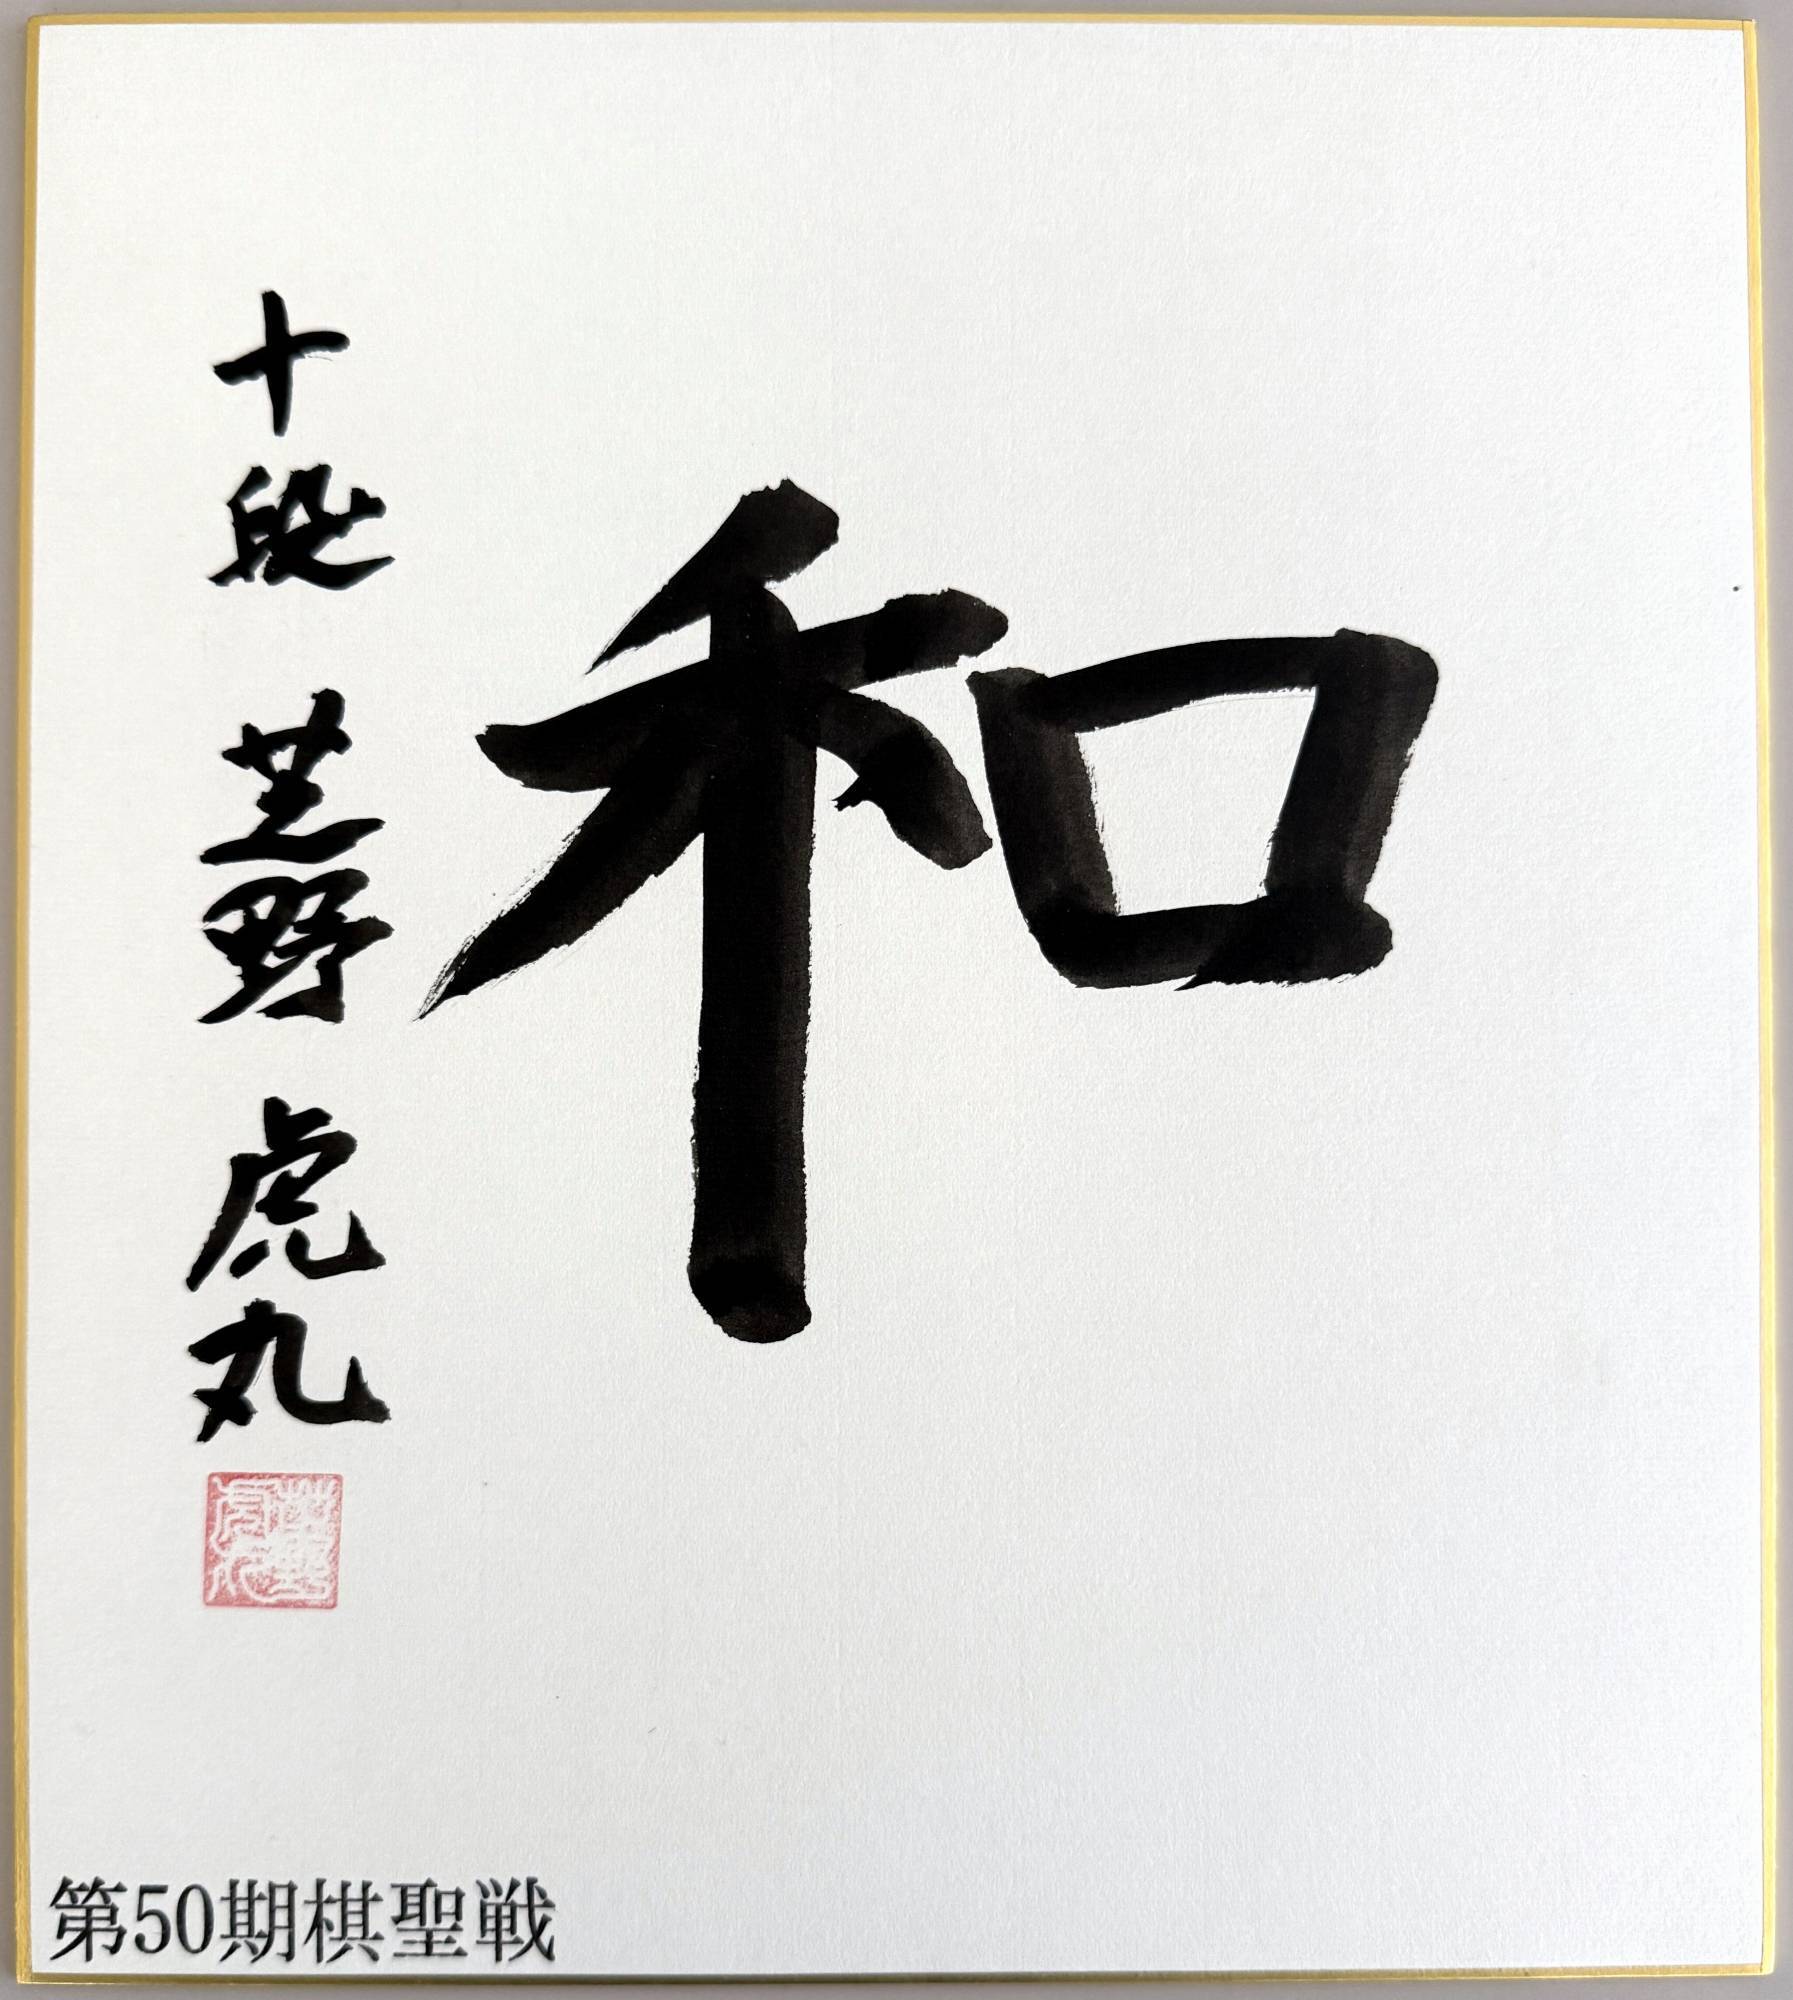 和
十段 芝野 虎丸
第50期棋聖戦